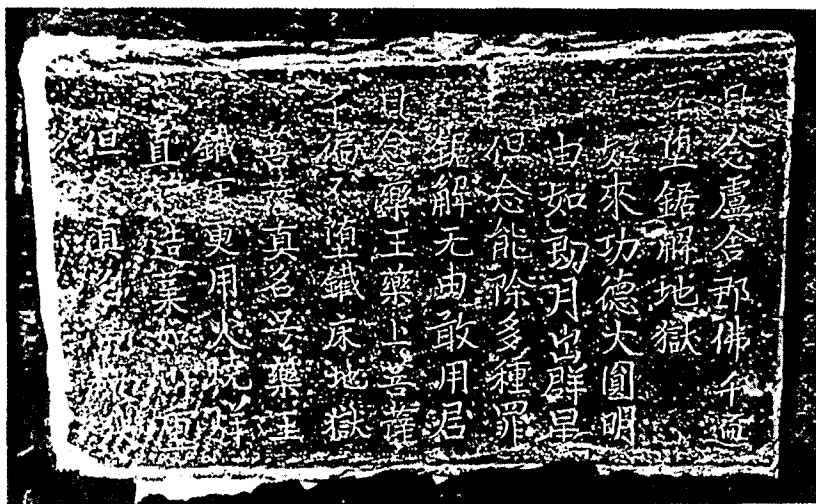 日念盧舍那佛千遍
不墮鋸解地獄
如來功德大圓明
由如朗月出群星
但念能除多種罪
鋸解无由敢用君
日念藥王藥上菩薩
千徧不墮鐵床地獄
菩薩真名号藥王
鐵更用火
直造業如山重
但念真名